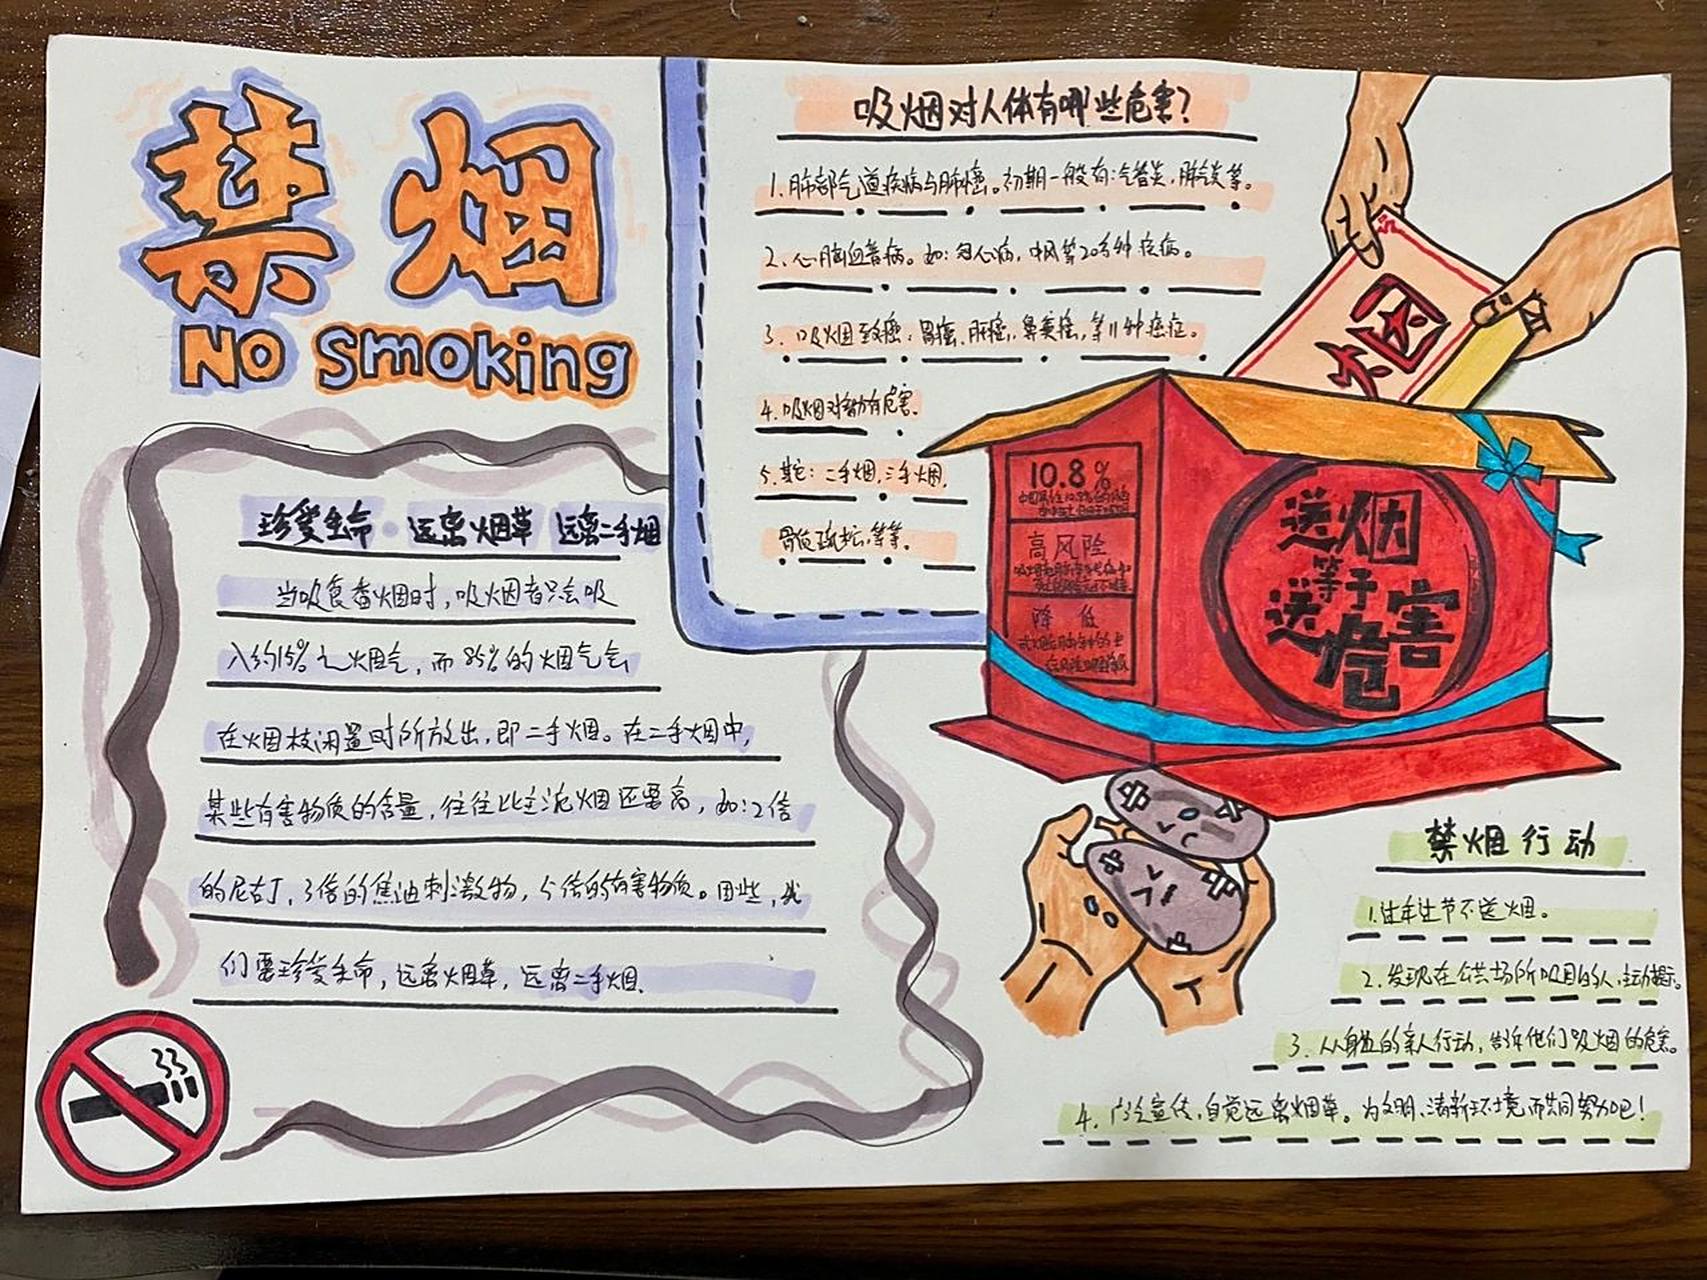 禁烟
No Smoking
珍爱生命 远离烟草 远离二手烟
当吸食香烟时，吸烟者只会吸
入约15%之烟气，而85%的烟气会
在火烟枝闲置时所放出，即二手烟。在二手烟中，
某些有害物质的含量，往往比主流烟还要高，如：2倍
的尼古丁，3倍的焦油刺激物，5倍的有害物质。因此，我
们要珍爱生命，远离烟草，远离二手烟.
吸烟对人体有哪些危害?
1.肺部气道疾病与肺癌。初期一般有：气管炎，肺炎等。
2、心脑血管病。如：冠心病，中风等20多种疾病。
3.吸烟致癌：胃癌、肝癌、鼻炎癌，等11种癌症。
4.吸烟对智力有危害.
5.其它：二手烟，三手烟，
骨质疏松，等等.
烟
10.8%
高风险
降低
送烟
等于
送危害
禁烟行动
1.过年过节不送烟。
2.发现在公共场所吸烟的人，主动提示。
3.从身边的亲人行动，告诉他们吸烟的危害。
4.广泛宣传，自觉远离烟草。为文明、清新环境而共同努力吧！